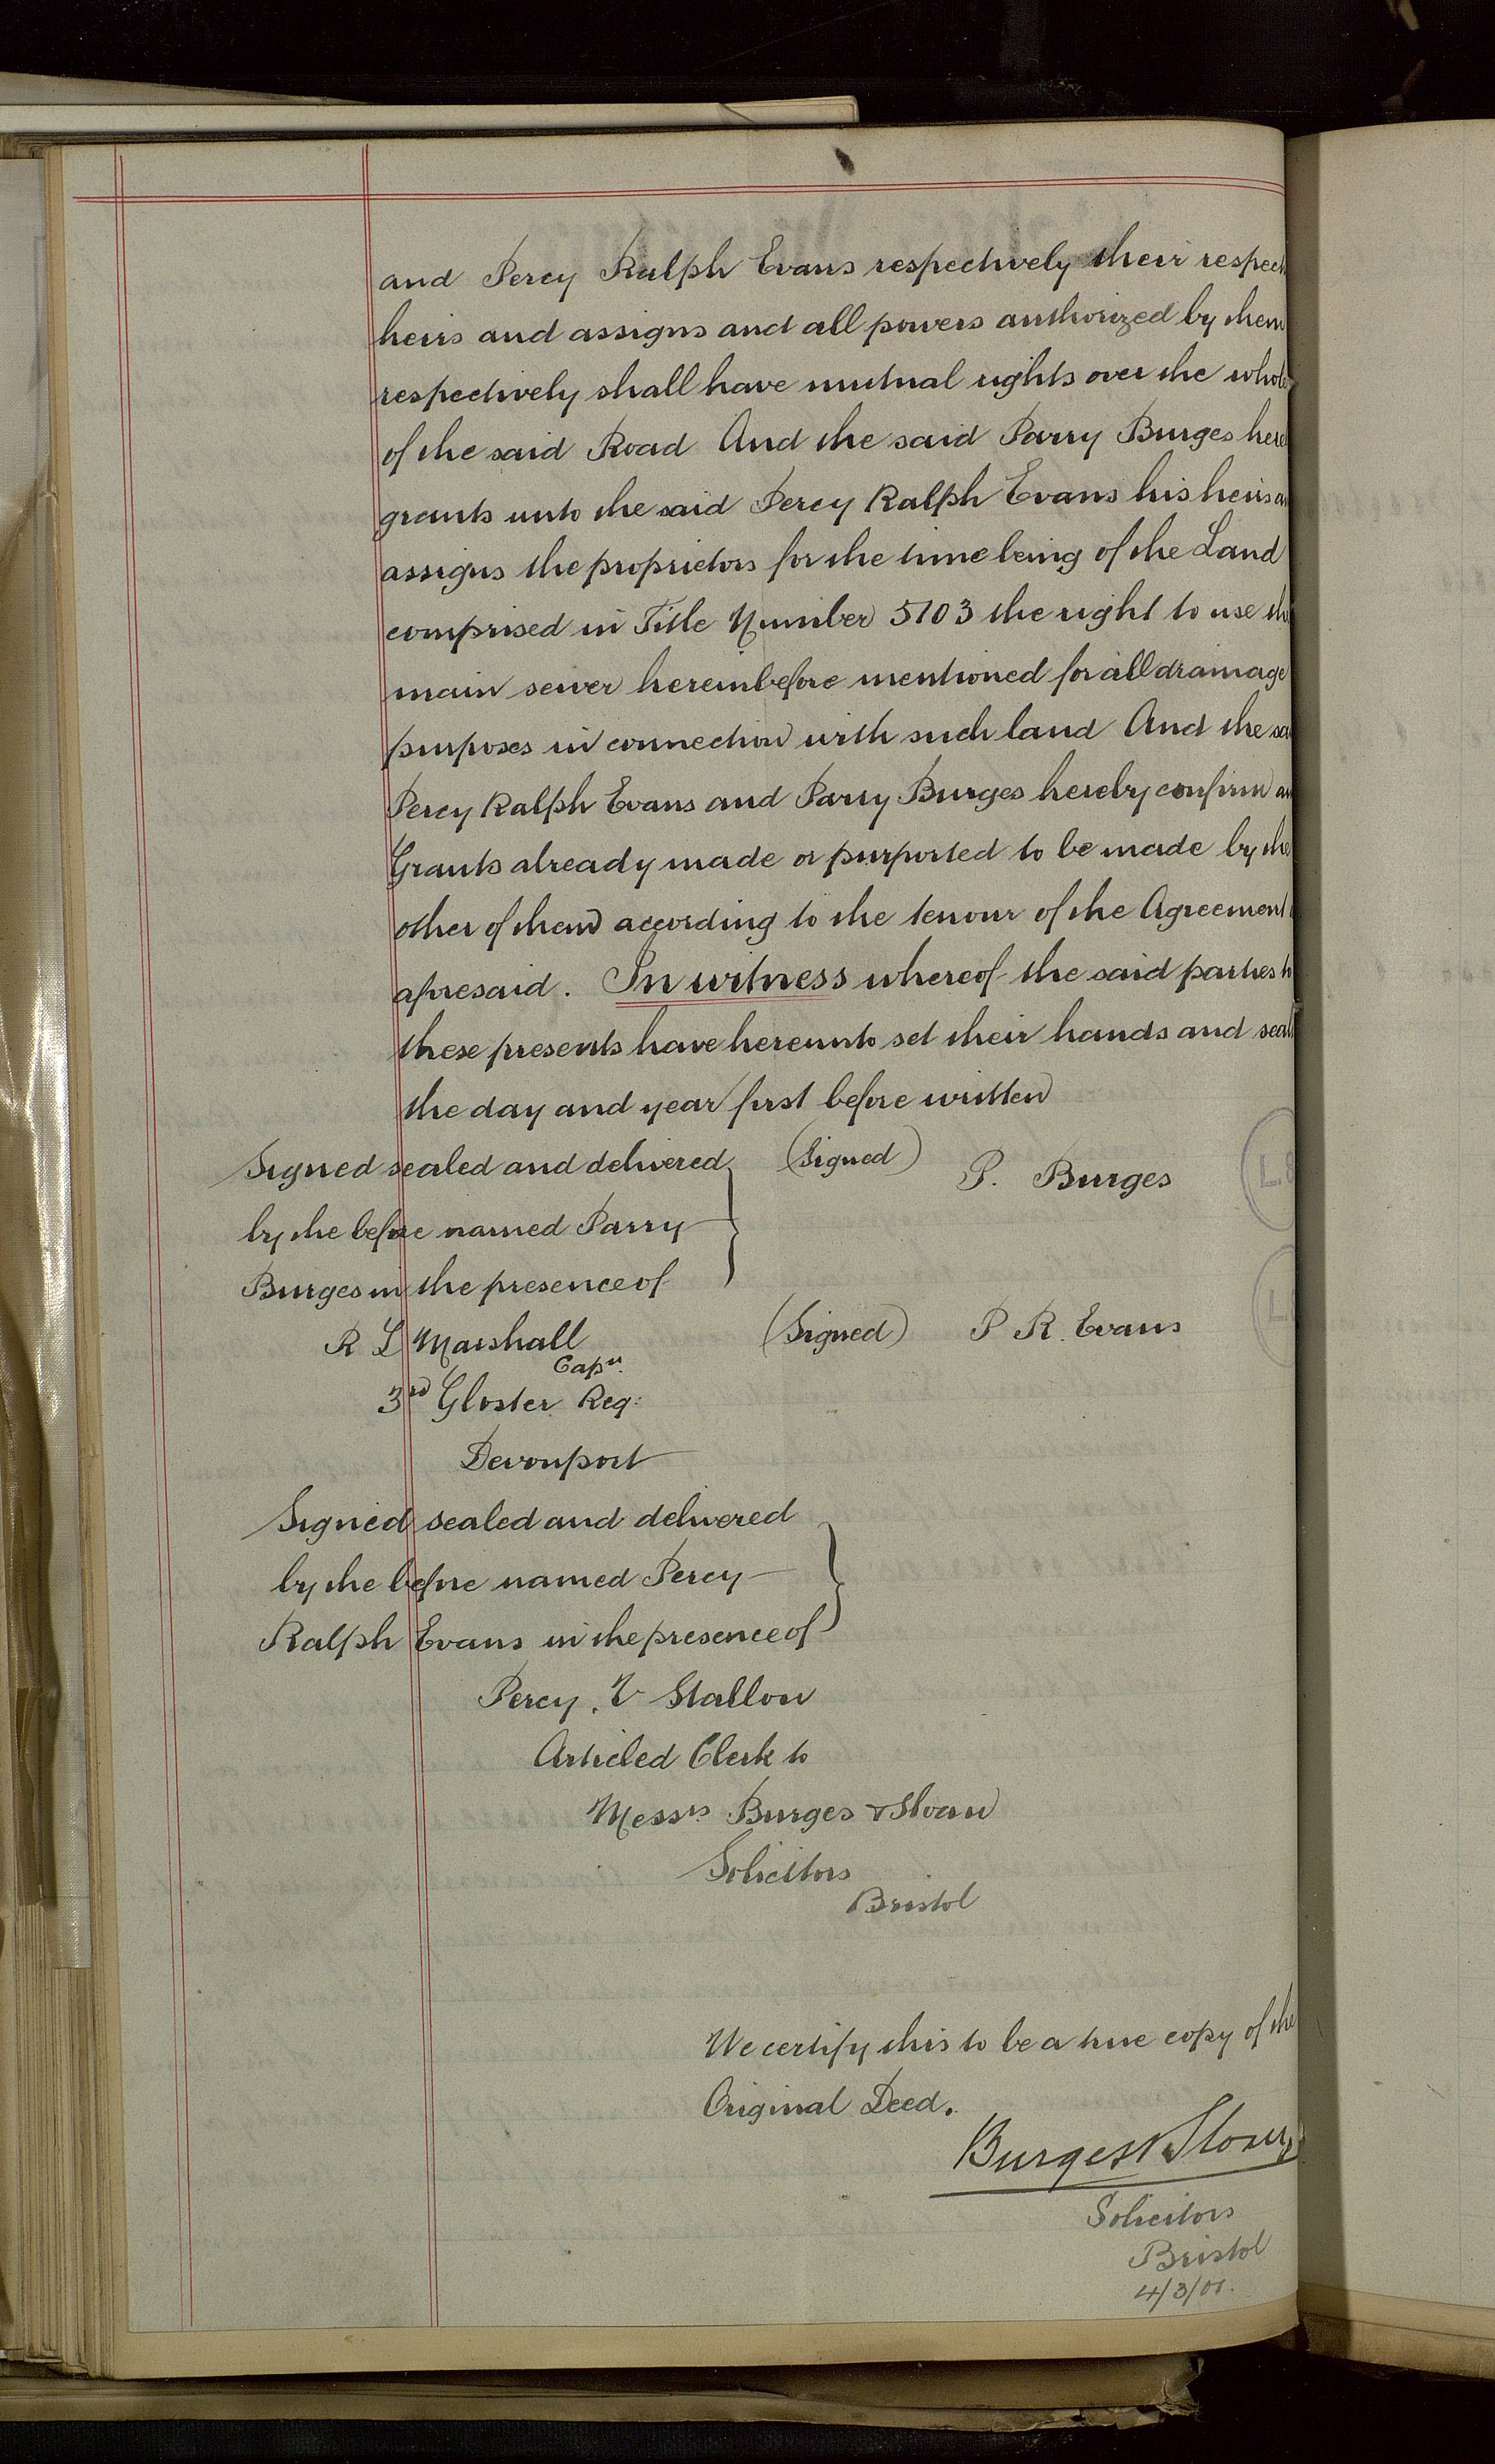 and Percy Ralph Evans respectively their respect
heirs and assigns and all powers authorized by them
respectively shall have mutual rights over the whole
of the said Road And the said Parry Burges here
grants unto the said Percy Ralph Evans his heirs an
assigns the proprietors for the time being of the Land
comprised in Title Number 5103 the right to use the
main sewer hereinbefore mentioned for all drainage
purposes in connection with such land And the sa
Percy Ralph Evans and Parry Burges hereby confirm an
Grants already made or purported to be made by the
other of them according to the tenour of the Agreement
aforesaid. In witness whereof the said parties to
these presents have hereunto set their hands and seal
the day and year first before written
Signed sealed and delivered (Signed) P. Burges L.S
by the before named Parry
Burges in the presence of
R L Marshall (Signed) P R. Evans L
Capn.
3rd Gloster Reg:
Devonport
Signed sealed and delivered
by the before named Percy
Ralph Evans in the presence of
Percy. V Stallon
Articled Clerk to
Messrs Burges & Sloan
Solicitors
Bristol
We certify this to be a true copy of the
Original Deed.
Burges & Sloan
Solicitors
Bristol
4/3/01.